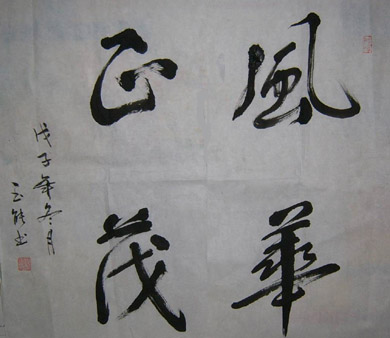 風華
正茂
戊子年冬月
玉能书